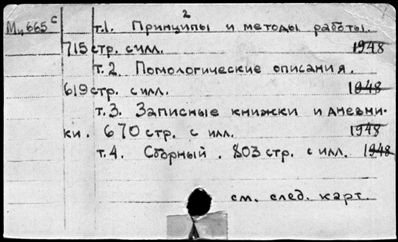 2
Мч665с т.1. Принципы и методы работы.
715 стр. с илл. 1948
т.2 Помологические описания.
619 стр. с илл. 1948
т.3. Записные книжки и дневни-
ки. 670 стр. с илл. 1948
т.4. Сборный. 803 стр. с илл. 1948
см. след. карт.